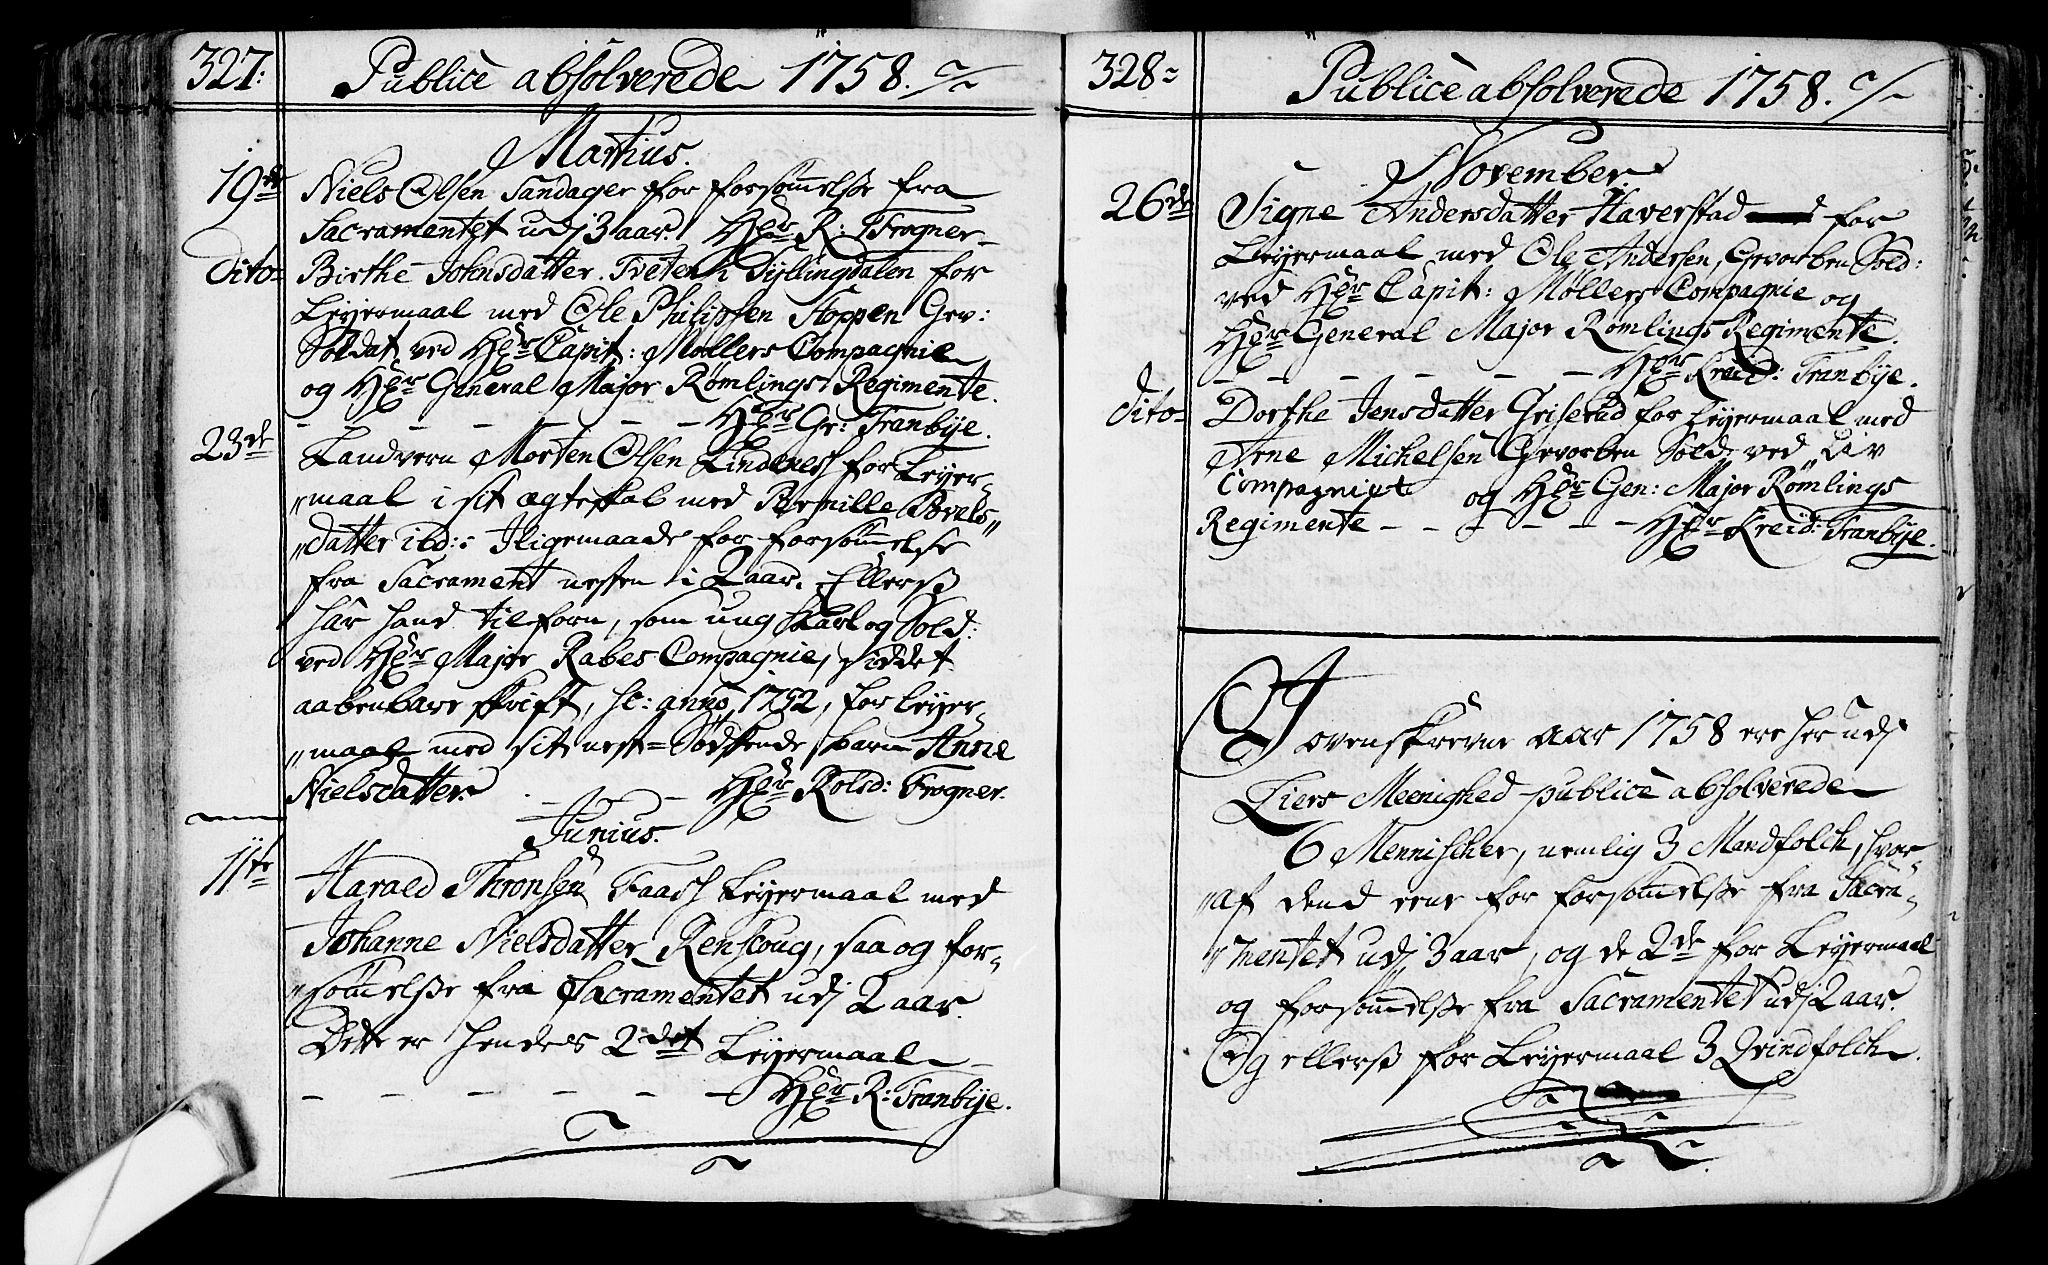 327:
Publicè absolverede 1758.
Martius.
19de Niels Olsen Sandager for forsømmelse fra
Sacramentet udj 3 aar. Her R: Frogner
Dito Birthe Johnsdatter Tveten i Dyllingdalen for
Leyermaal med Ole Philipsen Hoppen Gev:
Soldat ved Her Capit: Møllers Compagnie
og Her General Major Rømlings Regimente.
- - - - - - Her Gr: Tranbye.
23de Landvern Morten Olsen Lindenes for Leyer-
„maal i sit ægteskab med Pernille Povels„
„datter ibd: Iligemaade for forsømmelse
fra Sacrament nesten i 2 aar. Ellerss
har hand tilforn, som ung Karl og Sold:
ved Her Major Rabes Compagnie, siddet
aabenbare skrift, sc: anno 1752, for leyer-
„maal med sit nest-Sødskende barn Anne
Nielsdatter. - - Her Rolsd: Frogner.
Junius.
11te Harald Thronsen Faash Leyermaal med
Johanne Nielsdatter Renscoug, saa og for-
„sømmelse fra Sacramentet udj 2 aar.
Dette er hendes 2det Leyermaal
- - - - - - Her R: Tranbye.
328
Publicè absolverede 1758.
November
26de Signe Andersdatter Haverstad for
Leyermaal med Ole Andersen, Gevorben Sold:
ved Her Capit: Møllers Compagnie og
Her General Major Rømlings Regimente.
- - - - - - Her Kreid: Tranbye.
Dito Dorthe Jensdatter Griserud for leyermaal med
Arne Michelsen Gevorben Sold: ved Liv
Compagniet og Her Gen: Major Rømlings
Regimente - - - - - - Her Kreid: Tranbye.
I
ovenskrevne aar 1758 ere her udj
Liers Meenighed publicè absolverede
6 Mennischer, nemlig 3 Mandfolck, hvor-
„af dend eene for forsømmelse fra Sacra-
„mentet udj 3 aar, og de 2de for Leyermaal
og forsømmelse fra Sacramentet udj 2 aar.
Og ellerss for Leyermaal 3 Qvindfolck.